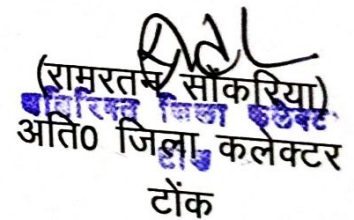 (रामरतन सौंकरिया)
अतिरिक्त जिला कलेक्टर
अति0 जिला कलेक्टर
टोंक
टोंक